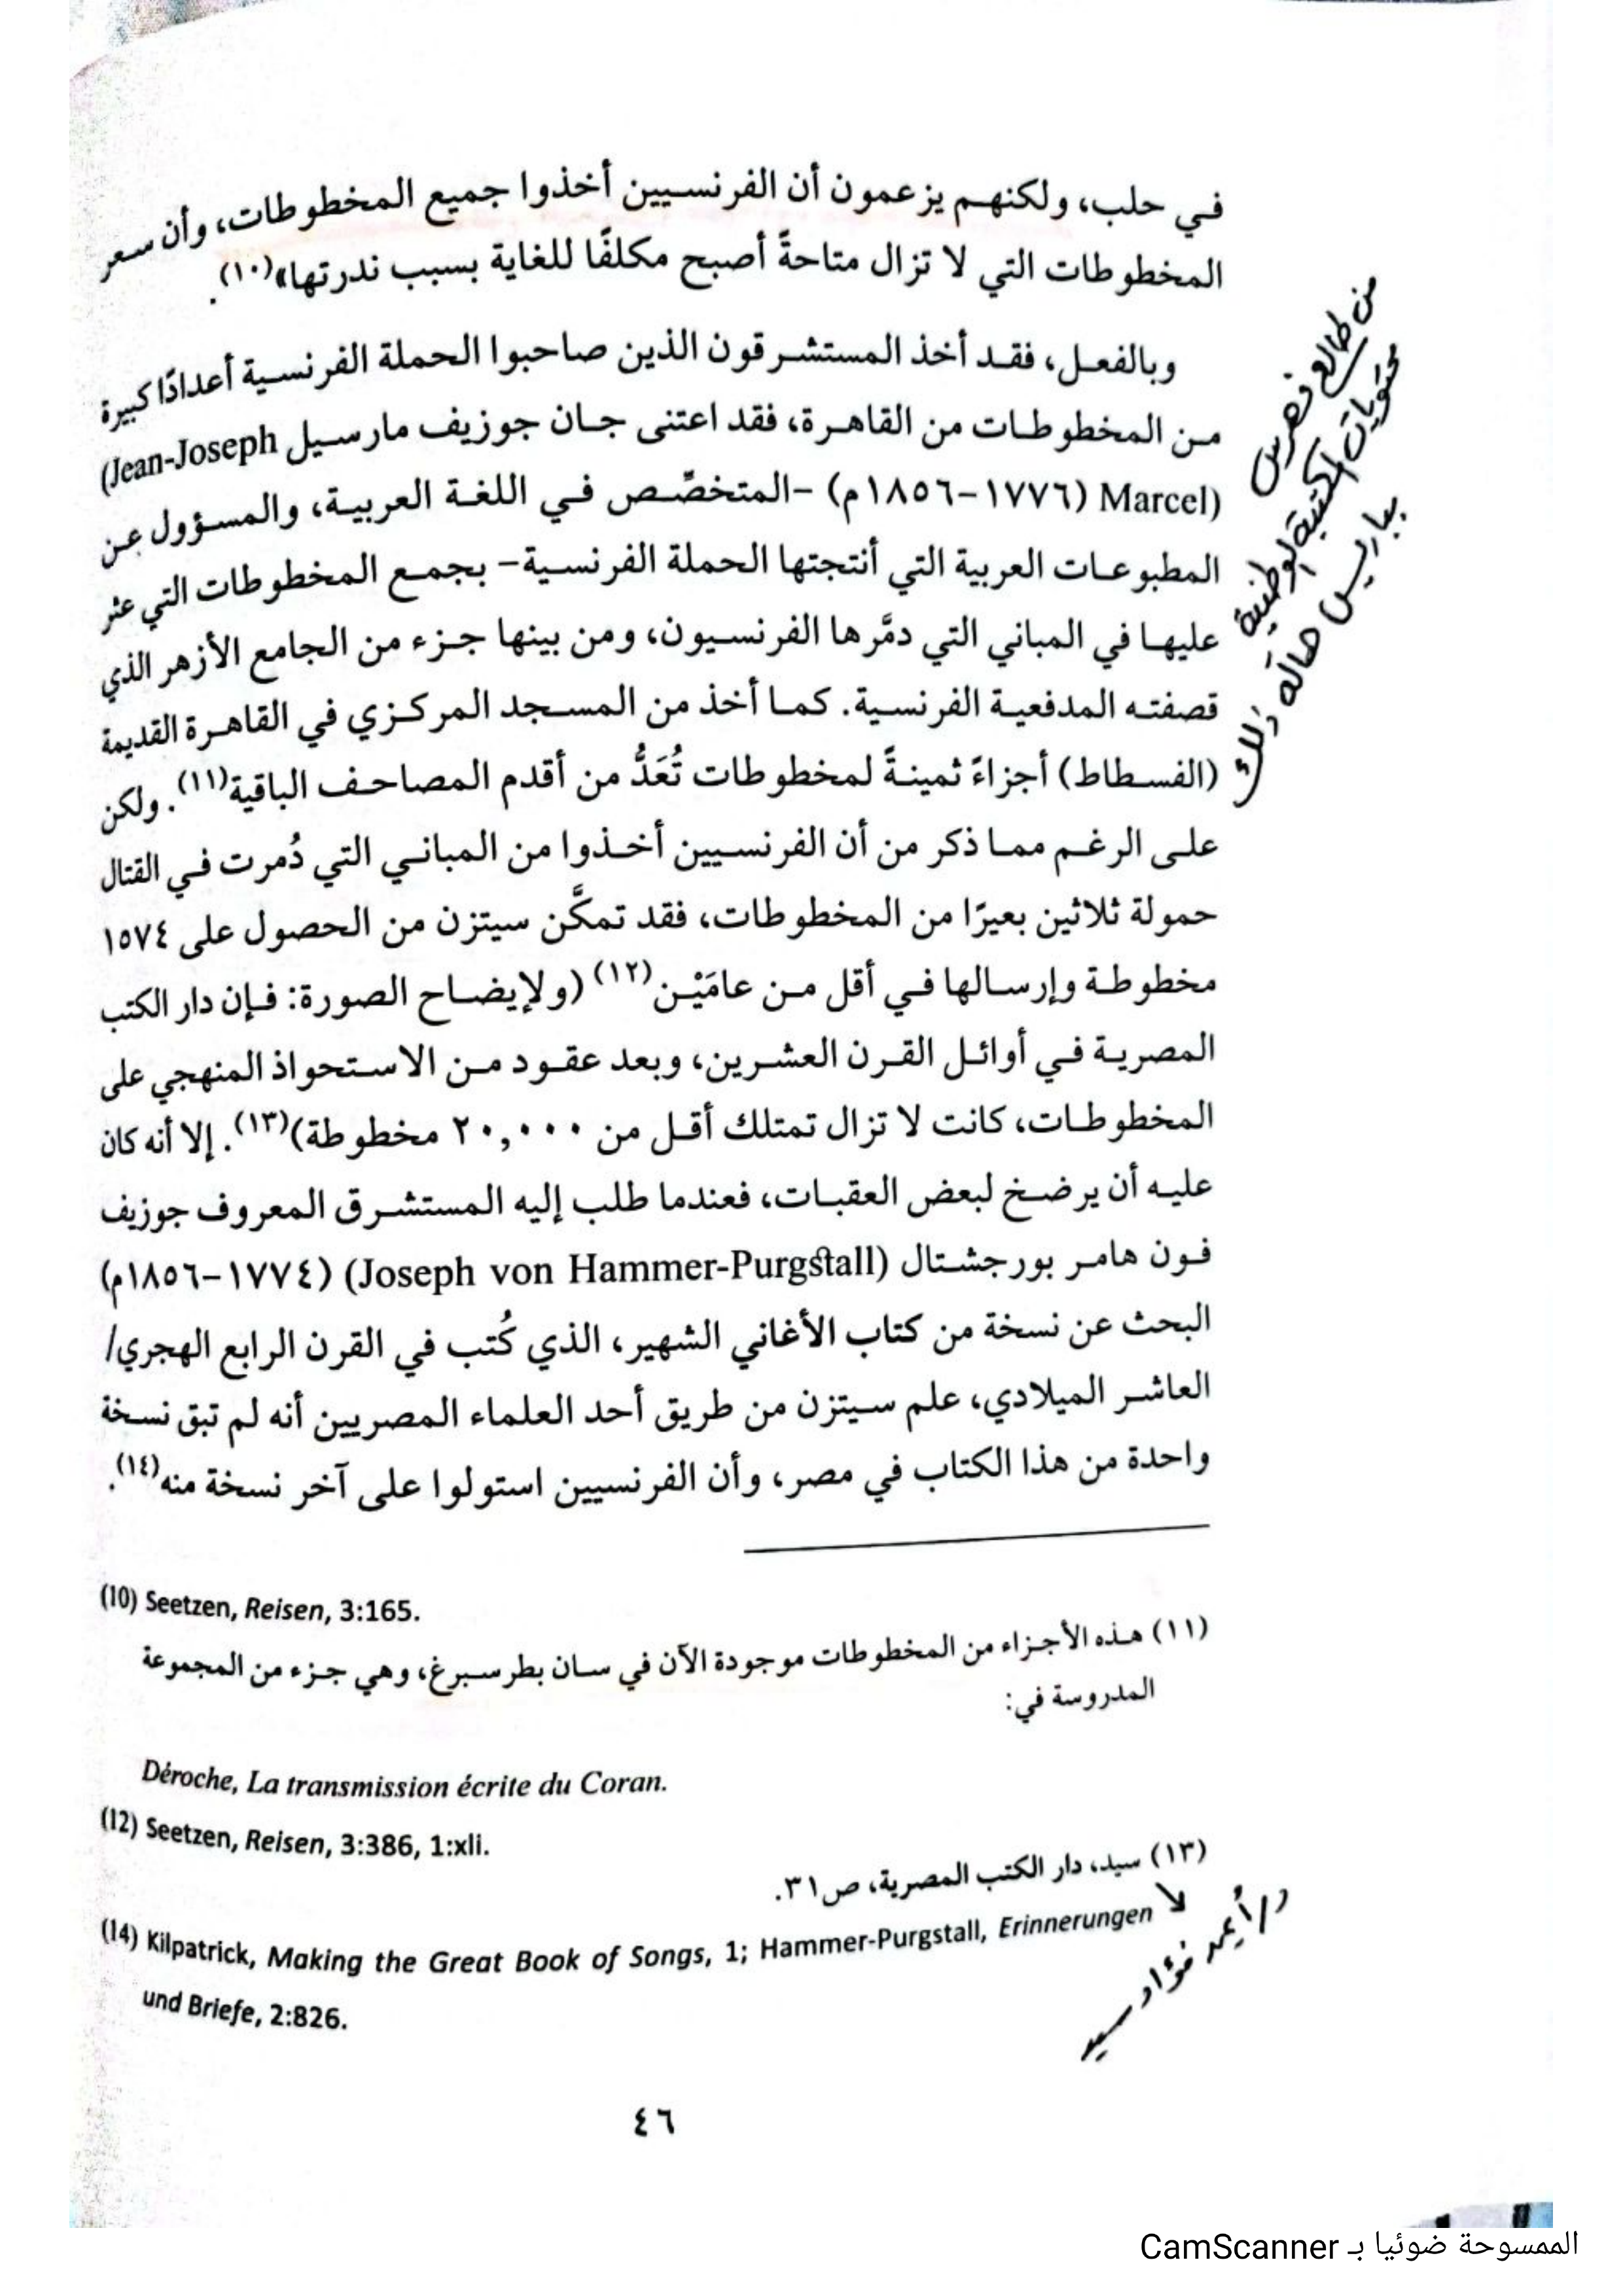 في حلب، ولكنهم يزعمون أن الفرنسيين أخذوا جميع المخطوطات، وأن سعر
المخطوطات التي لا تزال متاحةً أصبح مكلفًا للغاية بسبب ندرتها»(١٠).
وبالفعل، فقد أخذ المستشرقون الذين صاحبوا الحملة الفرنسية أعدادًا كبيرة
من المخطوطات من القاهرة، فقد اعتنى جان جوزيف مارسيل (Jean-Joseph
Marcel) (١٧٧٦-١٨٥٦م) -المتخصِّص في اللغة العربية، والمسؤول عن
المطبوعات العربية التي أنتجتها الحملة الفرنسية- بجمع المخطوطات التي عثر
عليها في المباني التي دمَّرها الفرنسيون، ومن بينها جزء من الجامع الأزهر الذي
قصفته المدفعية الفرنسية. كما أخذ من المسجد المركزي في القاهرة القديمة
(الفسطاط) أجزاءً ثمينةً لمخطوطات تُعَدُّ من أقدم المصاحف الباقية(١١). ولكن
على الرغم مما ذكر من أن الفرنسيين أخذوا من المباني التي دُمرت في القتال
حمولة ثلاثين بعيرًا من المخطوطات، فقد تمكَّن سيتزن من الحصول على ١٥٧٤
مخطوطة وإرسالها في أقل من عامَيْن(١٢) (ولإيضاح الصورة: فإن دار الكتب
المصرية في أوائل القرن العشرين، وبعد عقود من الاستحواذ المنهجي على
المخطوطات، كانت لا تزال تمتلك أقل من ٢٠,٠٠٠ مخطوطة)(١٣). إلا أنه كان
عليه أن يرضخ لبعض العقبات، فعندما طلب إليه المستشرق المعروف جوزيف
فون هامر بورجشتال (Joseph von Hammer-Purgstall) (١٧٧٤-١٨٥٦م)
البحث عن نسخة من كتاب الأغاني الشهير، الذي كُتب في القرن الرابع الهجري/
العاشر الميلادي، علم سيتزن من طريق أحد العلماء المصريين أنه لم تبق نسخة
واحدة من هذا الكتاب في مصر، وأن الفرنسيين استولوا على آخر نسخة منه(١٤).
من طالع فهرس
محتويات المكتبة الوطنية
بباريس هاله ذلك
(10) Seetzen, Reisen, 3:165.
(١١) هذه الأجزاء من المخطوطات موجودة الآن في سان بطرسبرغ، وهي جزء من المجموعة
المدروسة في:
Déroche, La transmission écrite du Coran.
(12) Seetzen, Reisen, 3:386, 1:xli.
(١٣) سيد، دار الكتب المصرية، ص٣١.
د/أيمن فؤاد سيد
(14) Kilpatrick, Making the Great Book of Songs, 1; Hammer-Purgstall, Erinnerungen
und Briefe, 2:826.
٤٦
الممسوحة ضوئيا بـ CamScanner